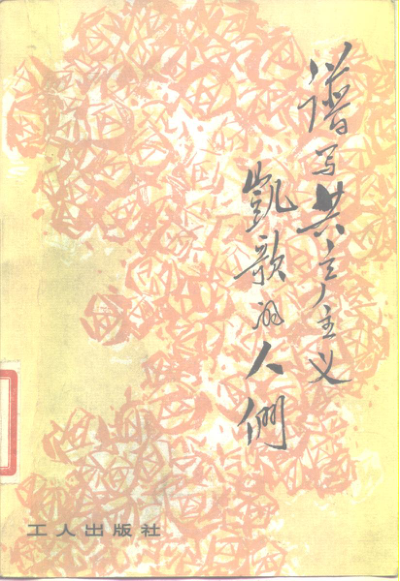 谱写共产主义
凯歌的人們
工人出版社